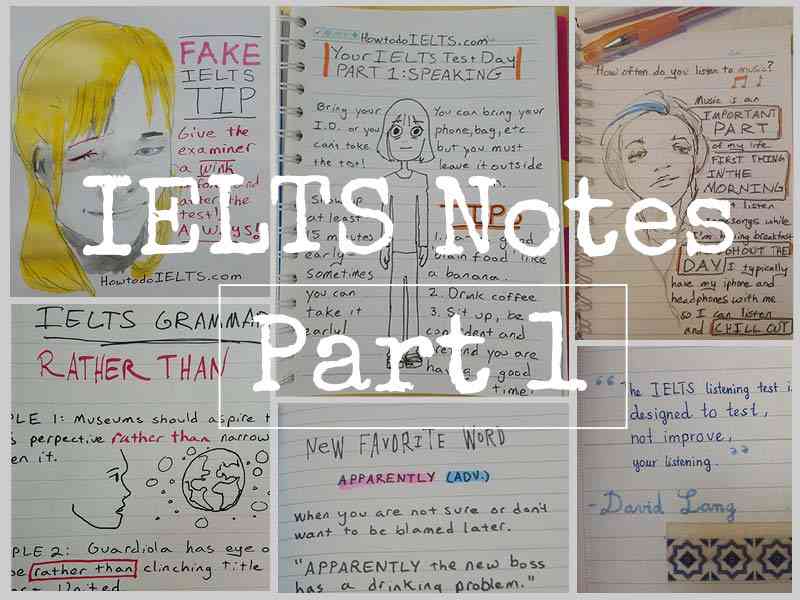 IELTS Notes
Part 1
FAKE
IELTS
TIP
Give the
examiner
a wink
and
after the
test!
Always!
HowtodoIELTS.com
HowtodoIELTS.com
Your IELTS Test Day
PART 1: SPEAKING
Bring your
I.D. or you
can't take
the test!
Show up
at least
15 minutes
early
sometimes
you can
take it
early!
You can bring your
phone, bag, etc
but you must
leave it outside
TIPS
good
"brain food" like
a banana.
2. Drink coffee
3. Sit up, be
confident and
remind you are
having a good
time!
How often do you listen to music?
Music is an
IMPORTANT
PART
of my life.
FIRST THING
IN THE
MORNING
listen
songs while
I'm having breakfast
THE
DAY I typically
have my iphone and
headphones with me
so I can listen
and CHILL OUT
IELTS GRAMMAR
RATHER THAN
PLE 1: Museums should aspire t
s perpective rather than narrow
en it.
PLE 2: Guardiola has eye o
be rather than clinching title
United
NEW FAVORITE WORD
APPARENTLY (ADV.)
when you are not sure or don't
want to be blamed later.
"APPARENTLY the new boss
has a drinking problem."
"he IELTS listening test i
designed to test,
not improve,
your listening."
-David Lang